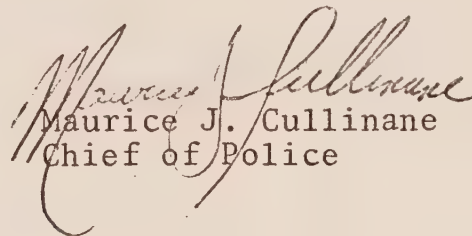 Maurice J. Cullinane
Maurice J. Cullinane
Chief of Police